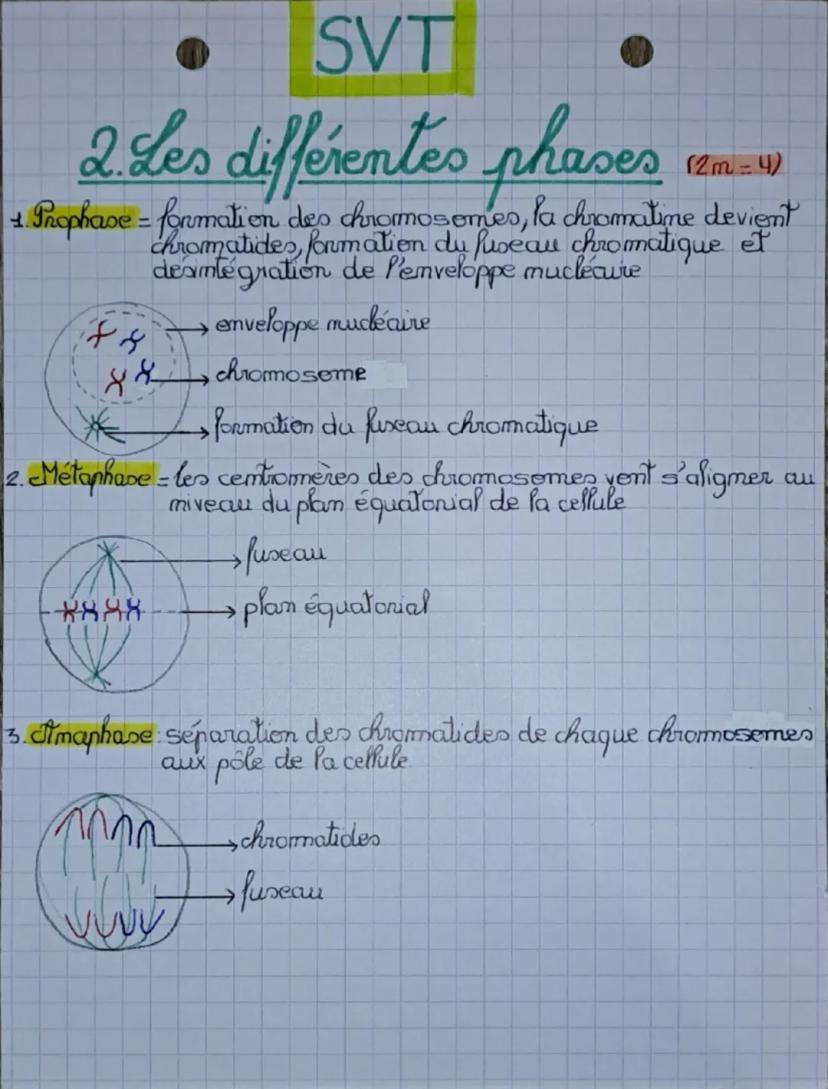 SVT
2. Les différentes phases (2n = 4)
1. Prophase = formation des chromosomes, la chromatine devient
chromatides, formation du fuseau chromatique et
désintégration de l'enveloppe nucléaire
enveloppe nucléaire
chromosome
formation du fuseau chromatique
2. Métaphase = les centromères des chromosomes vont s'aligner au
niveau du plan équatorial de la cellule
fuseau
plan équatorial
3. Anaphase : séparation des chromatides de chaque chromosomes
aux pôle de la cellule
chromatides
fuseau